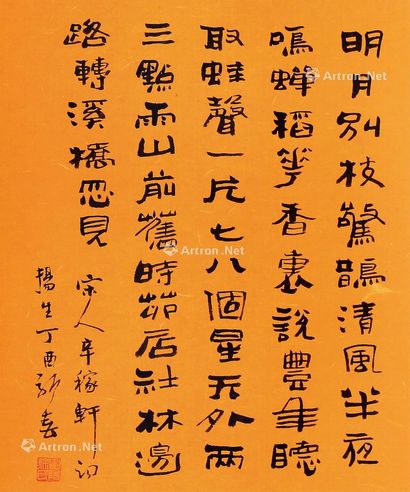 明月别枝驚鵲清風半夜
鳴蟬稻花香裏說豐年聽
取蛙聲一片七八個星天外兩
三點雨山前舊時茆店社林邊
路轉溪橋忽見
宋人辛稼軒詞
丁酉
Artron.Net
Artron.Net
Artron.Net
Artron.Net
Artron.Net